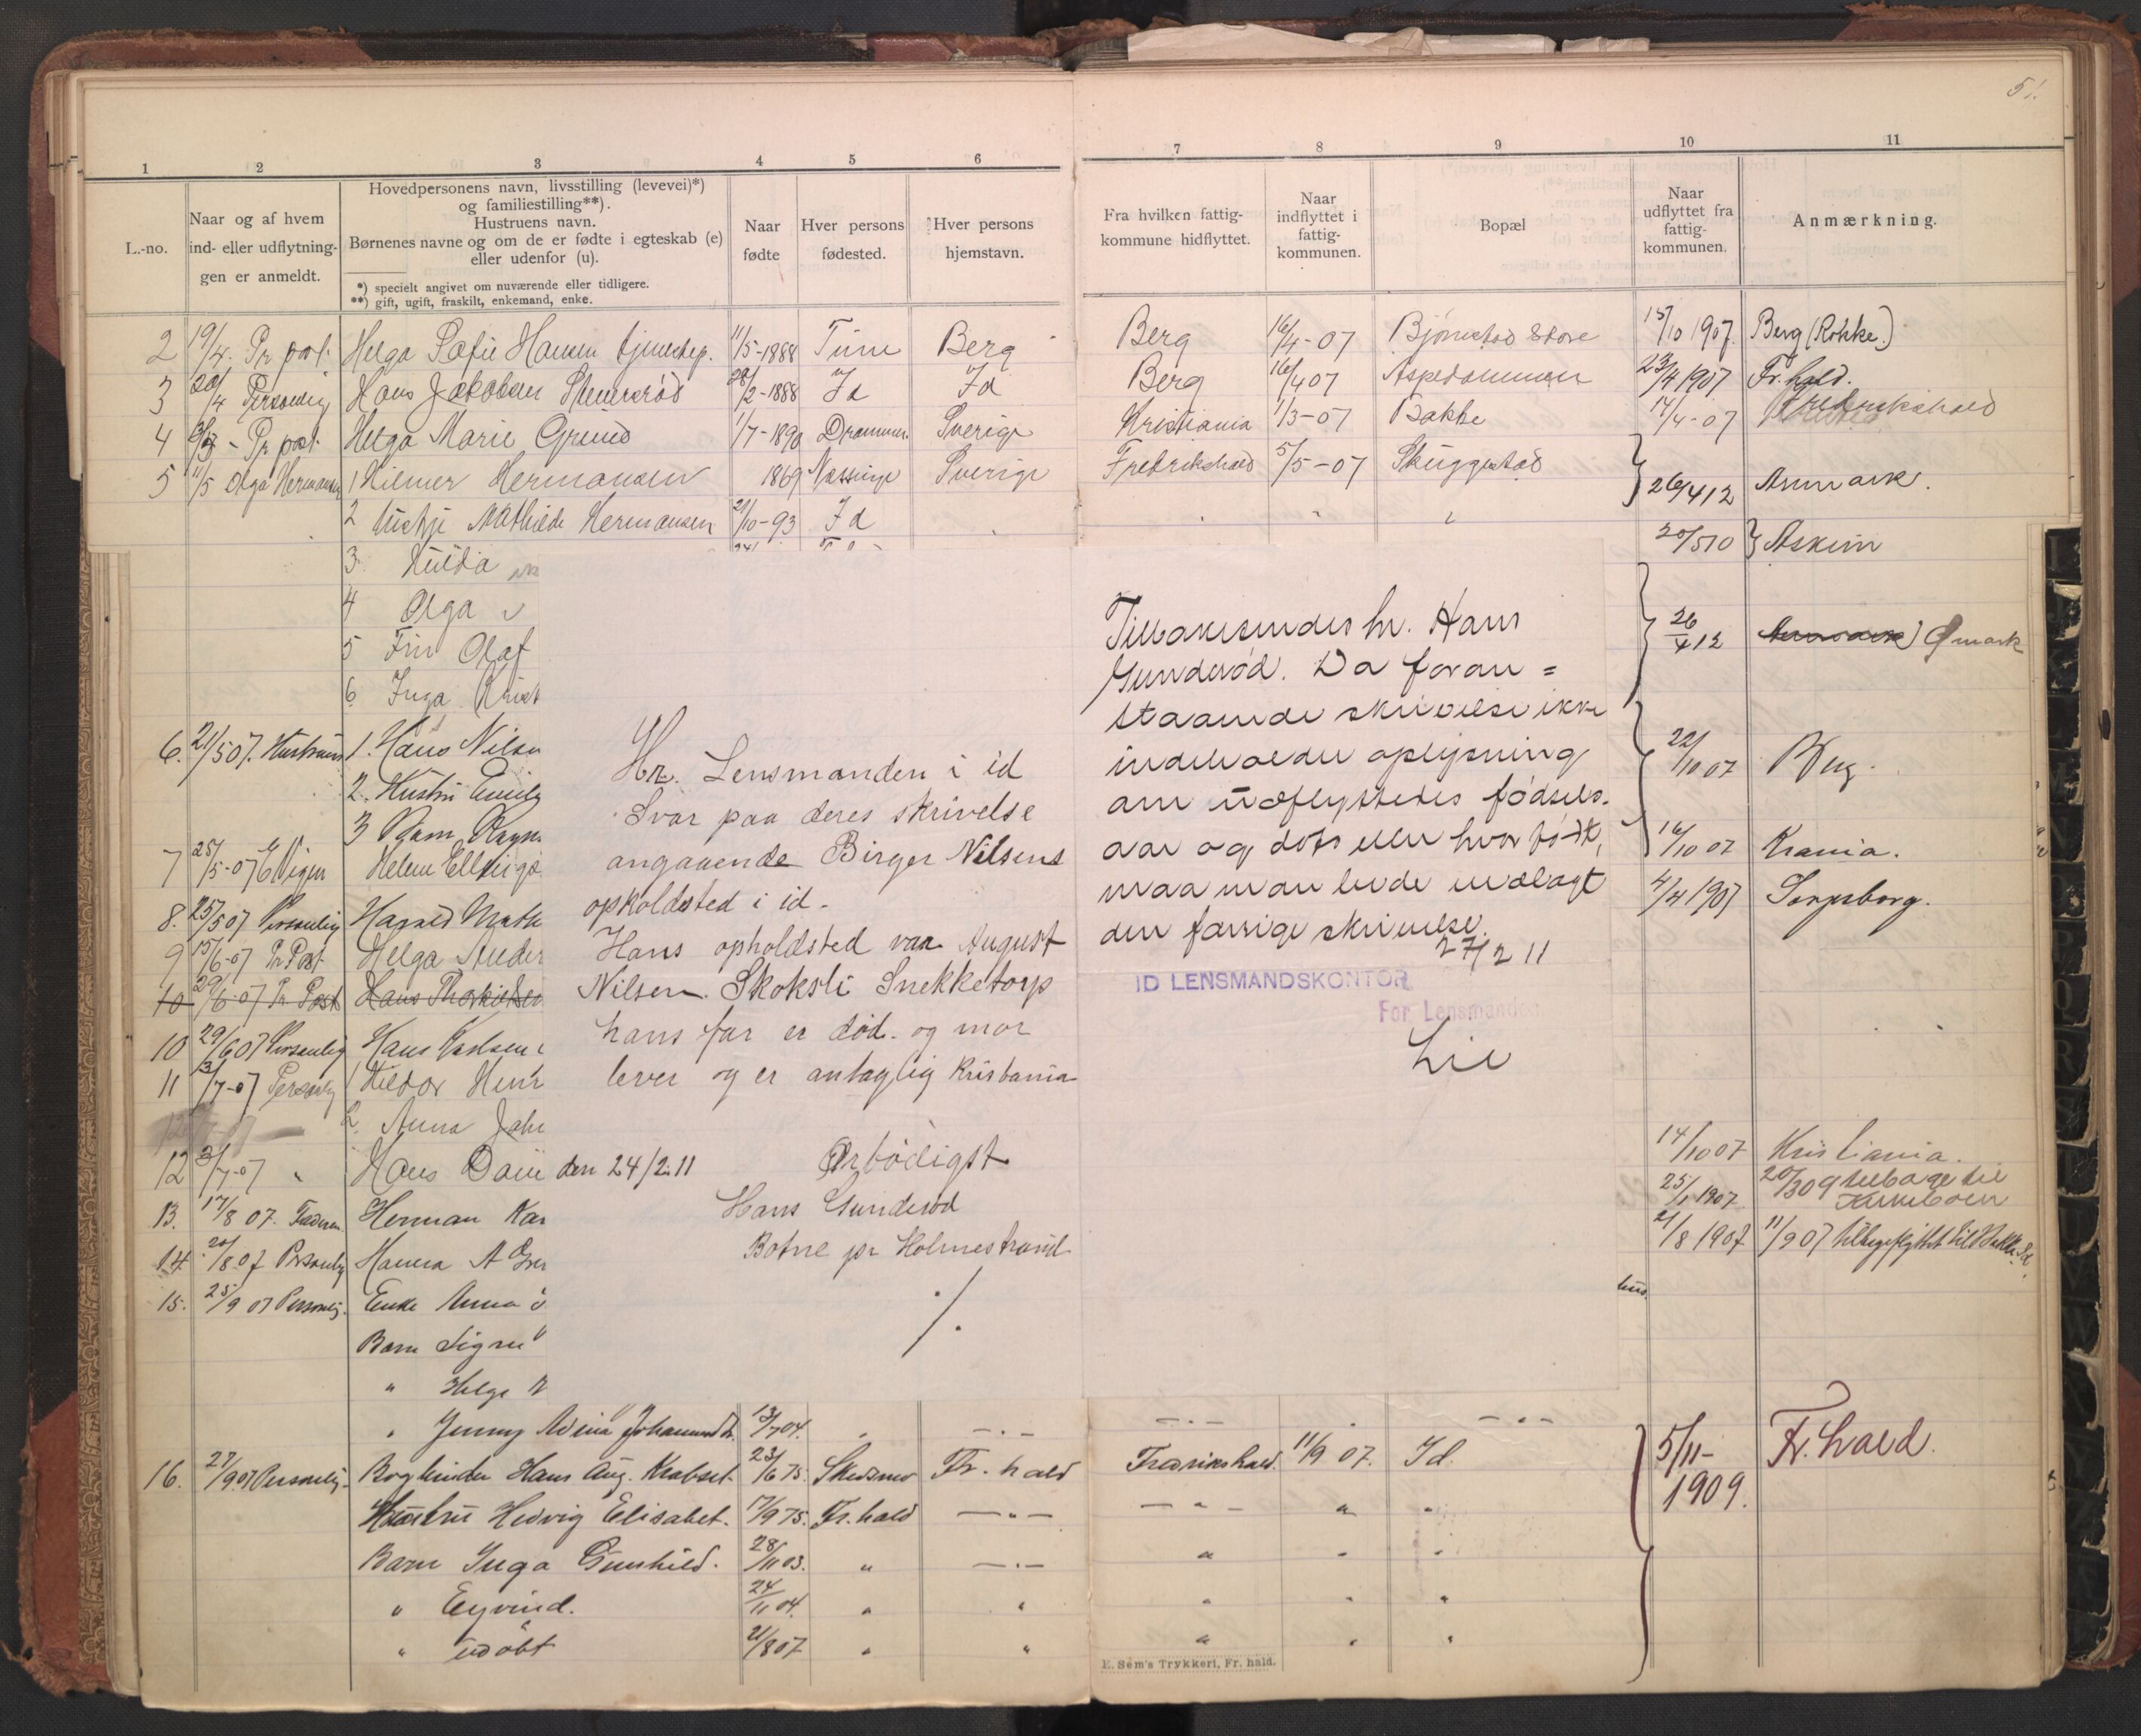 51.
1 2 3 4 5 6 7 8 9 10 11
L.-no.
Naar og af hvem
ind- eller udflytnin-
gen er anmeldt.
Hovedpersonens navn, livsstilling (levevei)*)
og familiestilling**).
Hustruens navn.
Børnenes navne og om de er fødte i egteskab (e)
eller udenfor (u).
*) specielt angivet om nuværende eller tidligere.
**) gift, ugift, fraskilt, enkemand, enke.
Naar
fødte
Hver persons
fødested.
Hver persons
hjemstavn.
Fra hvilken fattig-
kommune hidflyttet.
Naar
indflyttet i
fattig-
kommunen.
Bopæl
Naar
udflyttet fra
fattig-
kommunen.
Anmærkning.
2 19/4. Pr. post. Helga Sofie Hansen tjenestep. 11/5-1888 Tune Berg Berg 16/4-07 Bjørnstad Store 15/10 1907. Berg (Rokke.)
3 20/4 Personlig Hans Jakobsen 28/2-1888 Id Id Berg 16/4 07 Aspedammen 23/4 1907 Fr.hald.
4 - Pr post. Helga Marie Grund 1/7-1890 Drammen Sverige Kristiania 1/3-07 Bakke 14/4-07 Fredrikshald
5 11/5 Olga Hermansen 1 Hilmer Hermansen 1869 Sverige Fredrikshald 5/5-07 Skuggestad 26/4 12 Aremark.
2 Mathilde Hermansen 21/10-93 Id 20/5 10 } Askim
3 Hulda
4 Olga
5 Finn Olaf
6 Inga Krist
26/4 12 Ømark
6. 21/5 07. Hustruen 1. Hans Nilsen
2. Hustru Emily
3 Barn Ragn
22/10 07 Berg.
7 25/5-07 Helene
16/10 07 Krania.
8. 25/5 07 Personlig Harald
4/4 1907 Sarpsborg.
9 15/6-07 Pr Post Helga Ander
10 29/6-07 Pr Post Hans
10 29/6 07 Personlig Hans Karlsen
11 3/7-07 Personlig 1 Heldor Henr
2. Anna Joh
12 3/7-07 " Hans
14/10 07 Kristiania.
13. 17/8 07. Faderen Herman Kar
25/1 1907. 20/3 09 tilbage til
14. 20/8 07 Personlig Hanna A
21/8 1907 11/9 07 tilbageflyttet til Bakke Id.
15. 25/9 07 Personlig. Enke Anna
hus.
Barn Signe
" Helge
Hr. Lensmanden i id
Svar paa deres skrivelse
angaaende Birger Nilsens
opholdsted i id.
Hans opholdsted var August
Nilsen. Skoksli Snekketorp
hans far er død. og mor
lever og er antaglig Kristania
den 24/2.11 Ærbødigst
Hans Gunderød
Botne pr Holmestrand
./.
Tilbakesendes hr. Hans
Gunderød. Da foran=
staaende skrivelse ikke
indeholder oplysning
om utflyttedes fødsels-
aar og dets eller hvor født,
maa man bede vedlagt
den forrige skrivelse.
27/2 11
ID LENSMANDSKONTOR
For Lensmanden
Lie
" Jenny 13/7 04. " —"— —"— " —"—
16. 27/9 07 Personlig. Bogbinder Hans Aug. Krabset. 23/6 75. Skedsmo Fr.hald Fredrikshald. 11/9 07. Id. 5/11-1909. Fr.hald.
Hustru Hedvig Elisabet. 17/9 75. Fr.hald —"— —"— " "
Barn Inga Gunhild. 28/11 03. " —"— " " "
" Eyvind. 24/11 04. " " " " "
" udøbt 21/8 07 " " " " "
E. Sem's Trykkeri, Fr. hald.